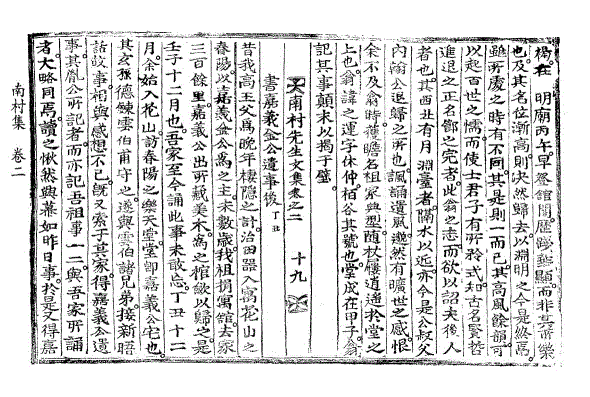 楊在 明廟丙午早登館閣歷敭華顯而非其所樂
也及其名位漸高則決然歸去以淵明之令是終焉
雖所處之時有不同其是則一而已其高風餘韻可
以起百世之懦而使士君子有所矜式知古名賢哲
進退之正名節之完者此翁之志而欲以詔夫後人
者也其西丑有月淵臺者隔水以近亦令是公叔父
內翰公退歸之所也諷誦遺風邈然有曠世之感恨
余不及翁時瞻名祖家典型隨杖屨逍遙於堂之
上也翁諱之運字休仲栢谷其號也堂成在甲子翁
記其事顚末以揭于壁
南村先生文集卷之二 十九
書嘉義金公遺事後 丁丑
昔我高王父爲晩年棲隱之計治田器入寓花山之
春陽以嘉義金公爲之主未數歲我祖捐寓舘去家
三百餘里嘉義公出所藏美木爲之棺斂以歸之是
壬子十二月也吾家至今誦此事未敢忘丁丑十二
月余始入花山訪春陽之樂天堂堂卽嘉義公宅也
其玄孫德鍊雲伯甫守之遂與雲伯諸兄弟接新晤
話故事相與感想不已旣又索于其家得嘉義公遺
事其胤公所記者而亦記吾祖事一二與吾家所誦
者大略同焉讀之愀然興慕如昨日事於是又得嘉
南村集 卷二